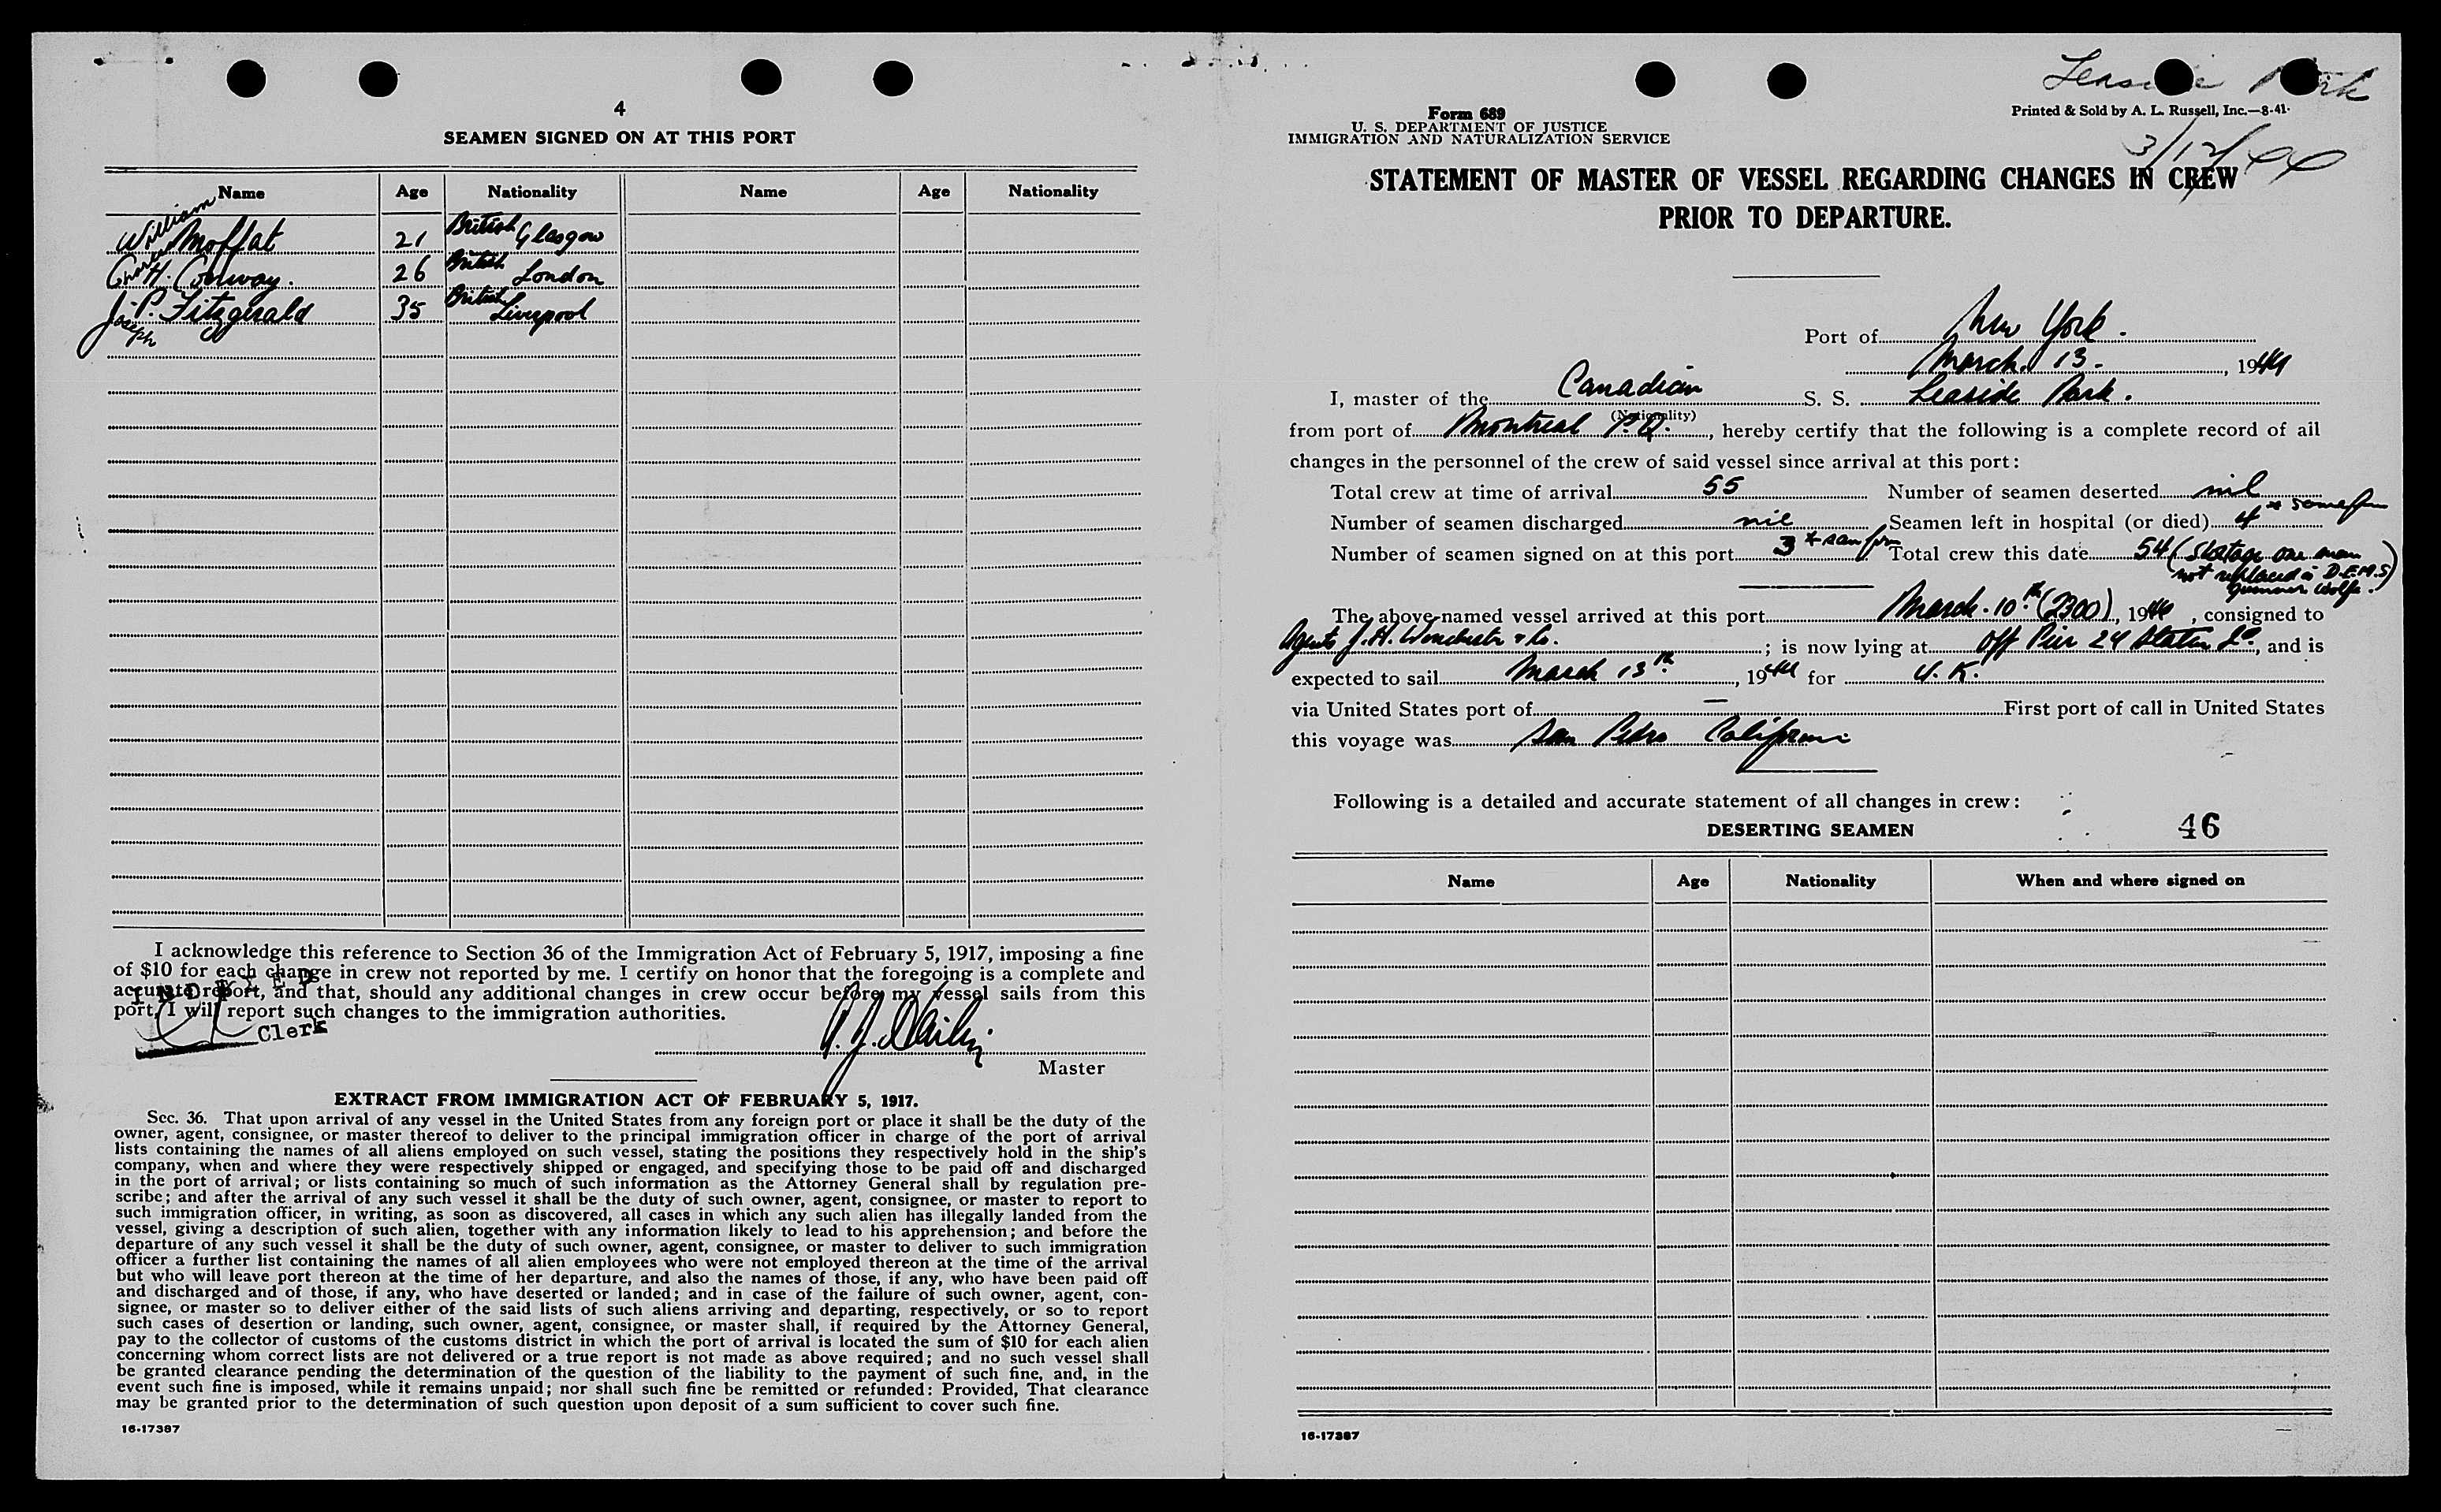 4
SEAMEN SIGNED ON AT THIS PORT
Name Age Nationality Name Age Nationality
William Moffat 21 British Glasgow
Charles H. Conway. 26 British London
J. P. Fitzgerald 35 British Liverpool
Joseph
I acknowledge this reference to Section 36 of the Immigration Act of February 5, 1917, imposing a fine
of $10 for each change in crew not reported by me. I certify on honor that the foregoing is a complete and
accurate report, and that, should any additional changes in crew occur before my vessel sails from this
port, I will report such changes to the immigration authorities.
INDEXED
Clerk
Master
EXTRACT FROM IMMIGRATION ACT OF FEBRUARY 5, 1917.
Sec. 36. That upon arrival of any vessel in the United States from any foreign port or place it shall be the duty of the
owner, agent, consignee, or master thereof to deliver to the principal immigration officer in charge of the port of arrival
lists containing the names of all aliens employed on such vessel, stating the positions they respectively hold in the ship's
company, when and where they were respectively shipped or engaged, and specifying those to be paid off and discharged
in the port of arrival; or lists containing so much of such information as the Attorney General shall by regulation pre-
scribe; and after the arrival of any such vessel it shall be the duty of such owner, agent, consignee, or master to report to
such immigration officer, in writing, as soon as discovered, all cases in which any such alien has illegally landed from the
vessel, giving a description of such alien, together with any information likely to lead to his apprehension; and before the
departure of any such vessel it shall be the duty of such owner, agent, consignee, or master to deliver to such immigration
officer a further list containing the names of all alien employees who were not employed thereon at the time of the arrival
but who will leave port thereon at the time of her departure, and also the names of those, if any, who have been paid off
and discharged and of those, if any, who have deserted or landed; and in case of the failure of such owner, agent, con-
signee, or master so to deliver either of the said lists of such aliens arriving and departing, respectively, or so to report
such cases of desertion or landing, such owner, agent, consignee, or master shall, if required by the Attorney General,
pay to the collector of customs of the customs district in which the port of arrival is located the sum of $10 for each alien
concerning whom correct lists are not delivered or a true report is not made as above required; and no such vessel shall
be granted clearance pending the determination of the question of the liability to the payment of such fine, and, in the
event such fine is imposed, while it remains unpaid; nor shall such fine be remitted or refunded: Provided, That clearance
may be granted prior to the determination of such question upon deposit of a sum sufficient to cover such fine.
16-17387
Leaside Park
Form 689
U. S. DEPARTMENT OF JUSTICE
IMMIGRATION AND NATURALIZATION SERVICE
Printed & Sold by A. L. Russell, Inc.—8-41-
3/12/44
STATEMENT OF MASTER OF VESSEL REGARDING CHANGES IN CREW
PRIOR TO DEPARTURE.
Port of New York.
March 13. , 1944
I, master of the Canadian S. S. Leaside Park.
(Nationality)
from port of Montreal P.Q. , hereby certify that the following is a complete record of all
changes in the personnel of the crew of said vessel since arrival at this port:
Total crew at time of arrival 55 Number of seamen deserted nil
Number of seamen discharged nil Seamen left in hospital (or died) 4
Number of seamen signed on at this port 3 Total crew this date 54 (Shortage one man
not replaced is D.E.M.S
gunner Wolfe.)
The above-named vessel arrived at this port March. 10th (2300), 1944 , consigned to
Agents J. H. Winchester & Co. ; is now lying at Off Pier 24 Staten Id., and is
expected to sail March 13th , 1944 for U. K.
via United States port of — First port of call in United States
this voyage was San Pedro California
Following is a detailed and accurate statement of all changes in crew:
DESERTING SEAMEN
46
Name Age Nationality When and where signed on
16-17387